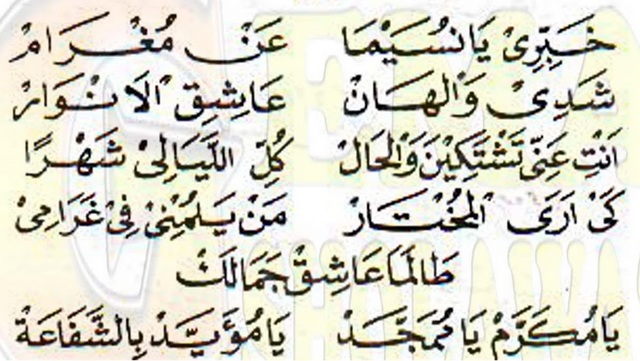 خَبِّرِىْ يَا نُسَيْمَا عَنْ مُغْرَامْ
شَدِىْ وَالْهَانْ عَاشِقِ الْاَنْوَارْ
اَنْتِ عَنِّىْ تَشْتَكِيْنَ وَالْحَالْ كُلِّ اللَّيَالِىْ شَهْرًا
كَىْ اَرَى الْمُخْتَارْ مَنْ يَلُمْنِىْ فِىْ غَرَامِىْ
طَالَمَا عَاشِقْ جَمَالَكْ
يَا مُكَرَّمْ يَا مُمَجَّدْ يَا مُؤَيَّدْ بِالشَّفَاعَةْ